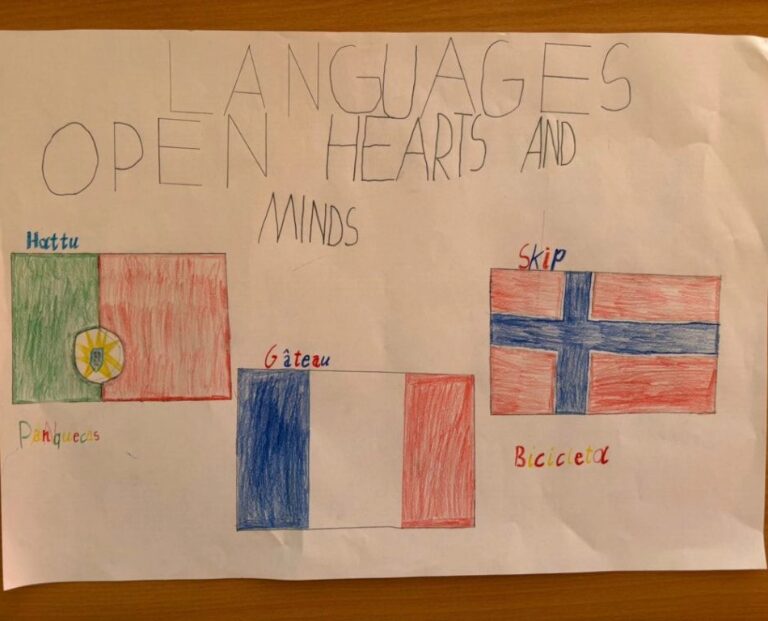 LANGUAGES
OPEN HEARTS AND
MINDS
Hattu
Skip
Gâteau
Panquecas
Bicicleta